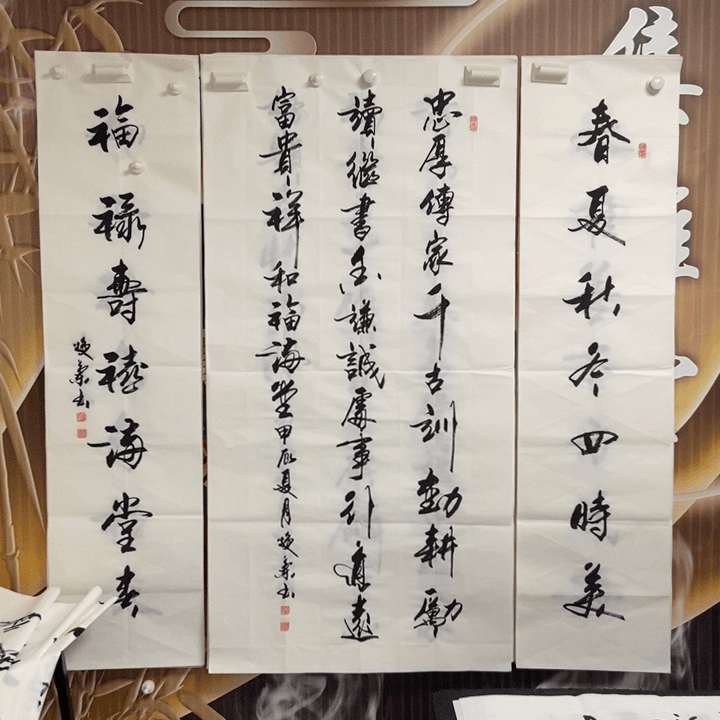 春夏秋冬四時美
忠厚傳家千古訓勤耕勵
讀繼書香謙誠處事行遠
富貴祥和福滿堂甲辰夏月
福祿壽禧滿堂春